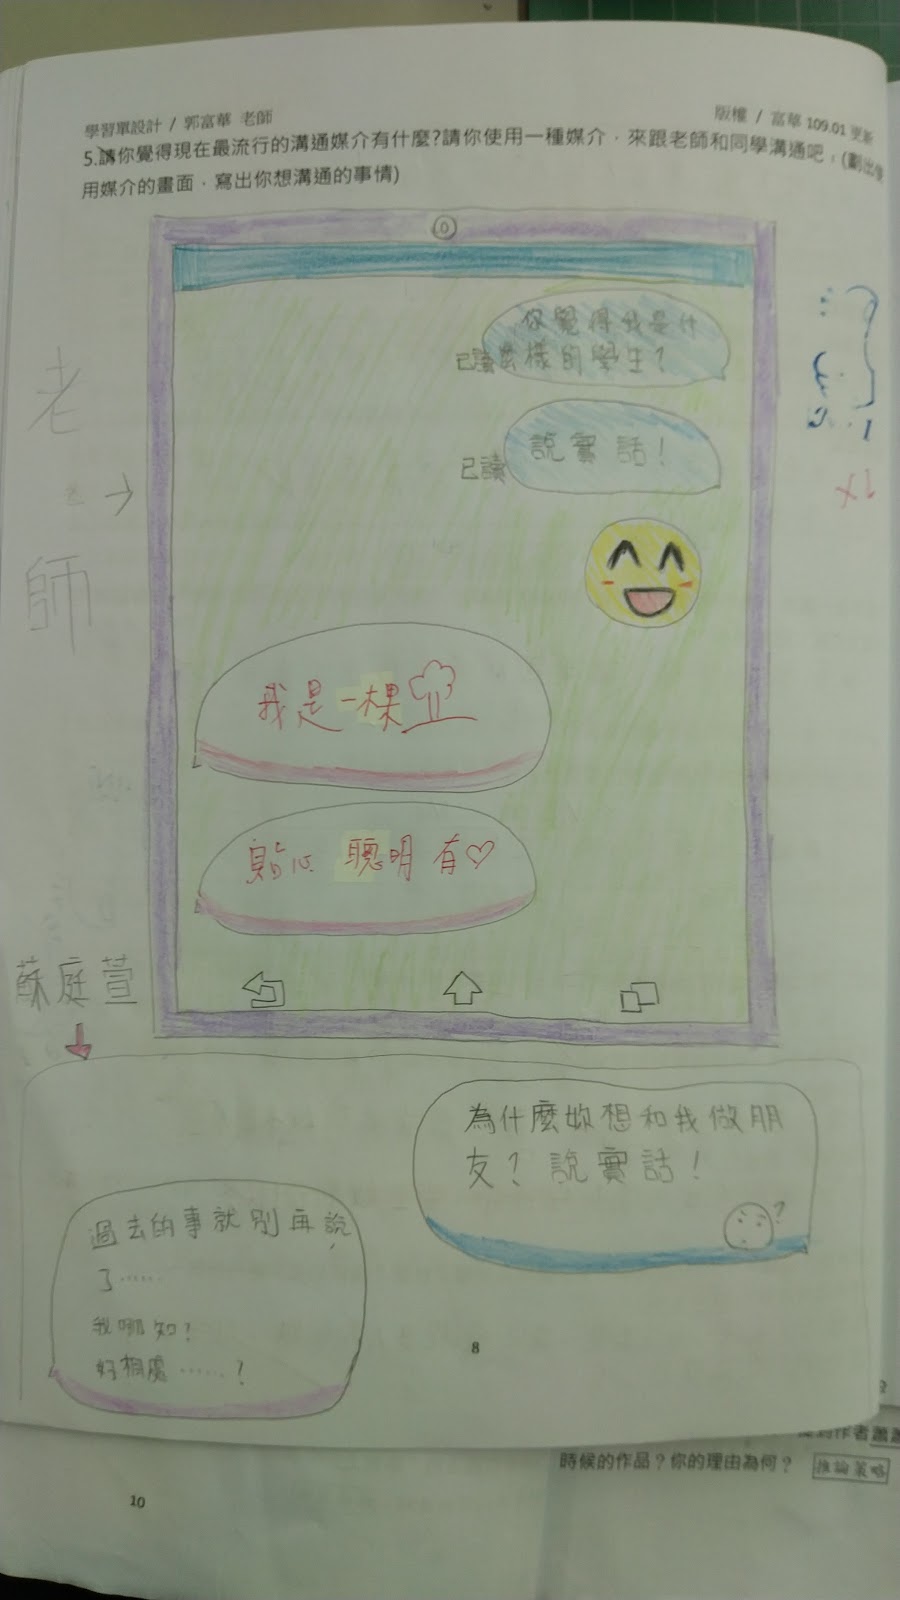 學習單設計 / 郭富華 老師
版權 / 富華 109.01 更新
5.請你覺得現在最流行的溝通媒介有什麼?請你使用一種媒介，來跟老師和同學溝通吧，(劃出使
用媒介的畫面，寫出你想溝通的事情)
你覺得我是什
已讀 麼樣的學生？
已讀 說實話！
老
師
我是一棵
貼心 聰明 有♡
蘇庭萱
為什麼妳想和我做朋
友？說實話！
?
過去的事就別再說
了……
我哪知？
好相處……？
8
作者蕭蕭
時候的作品？你的理由為何？ 推論策略
10